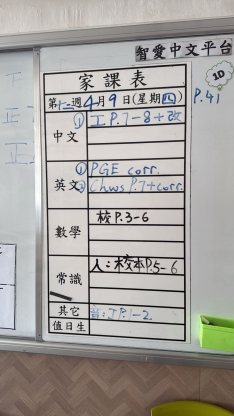 智愛中文平台
家課表
1D
第十二週4月9日(星期四)
P.41
中文
① 工P.7-8+改
英文
① PGE corr.
② Chws P.7+corr.
數學
校P.3-6
常識
人:校本P.5-6
其它
普:JP.1-2
值日生
正
正
正